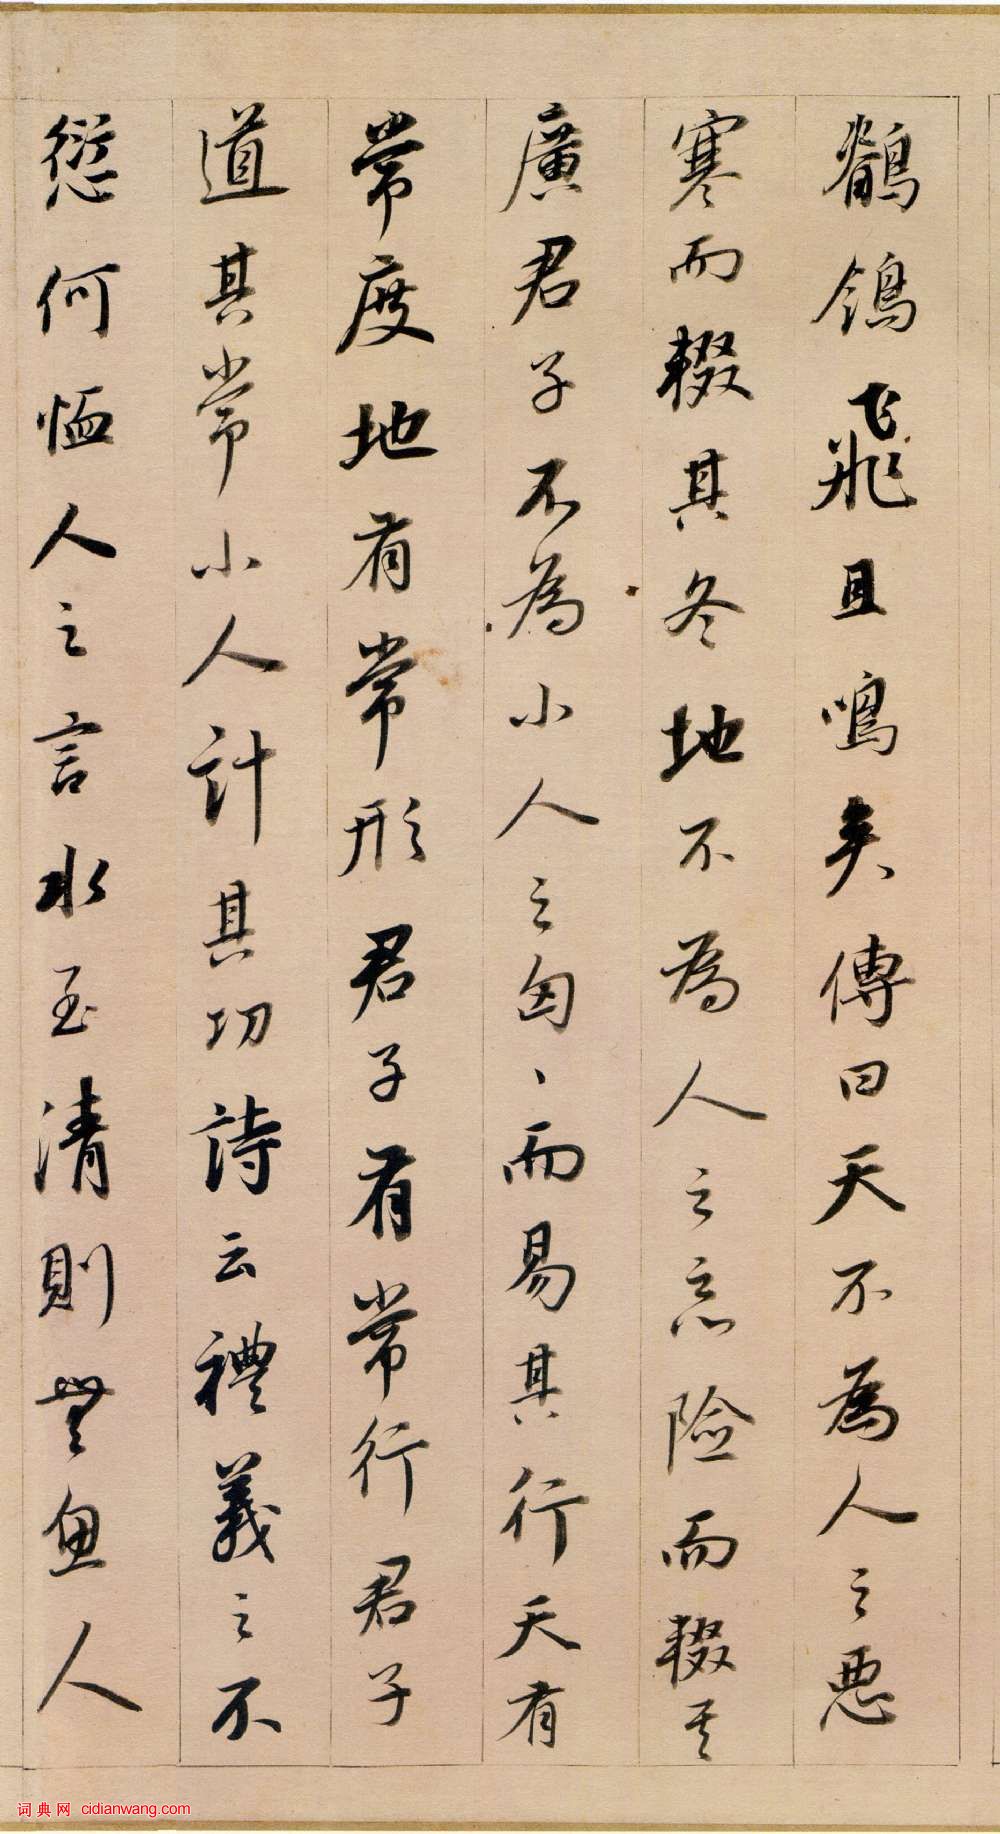 鶺鴒飛且鳴矣傳曰天不為人之惡
寒而輟其冬地不為人之惡險而輟其
廣君子不為小人之匈〻而易其行天有
常度地有常形君子有常行君子
道其常小人計其功詩云禮義之不
愆何恤人之言水至清則無魚人
词典网 cidianwang.com